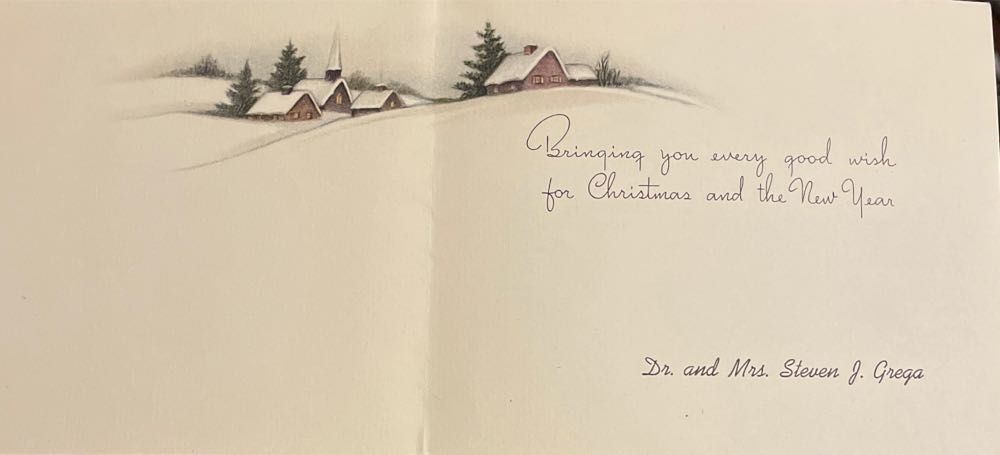 Bringing you every good wish
for Christmas and the New Year
Dr. and Mrs. Steven J. Grega